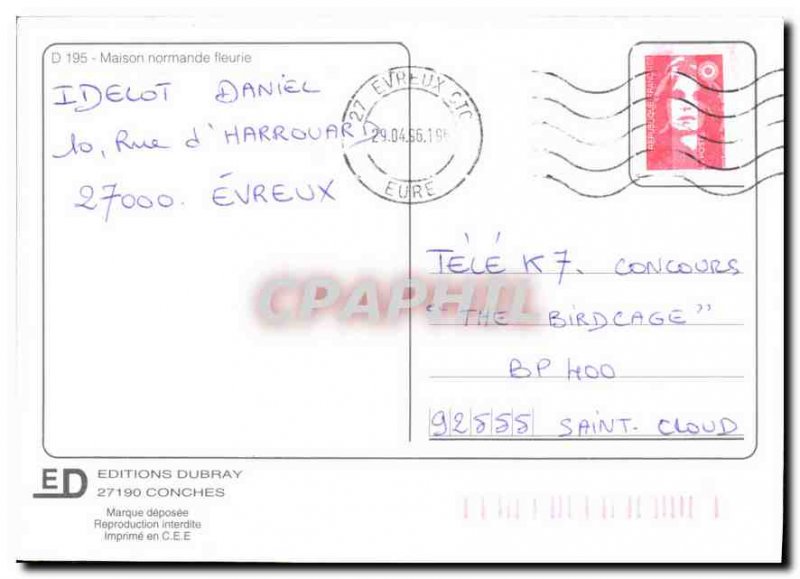 D 195 - Maison normande fleurie
IDELOT DANIEL
10, Rue d'HARROUARD
27000. ÉVREUX
27 EVREUX CTC
29.04.96.19
EURE
REPUBLIQUE FRANÇAISE
TÉLÉ K7. CONCOURS
"THE BIRDCAGE"
BP 400
92555 SAINT-CLOUD
CPAPHIL
ED
EDITIONS DUBRAY
27190 CONCHES
Marque déposée
Reproduction interdite
Imprimé en C.E.E